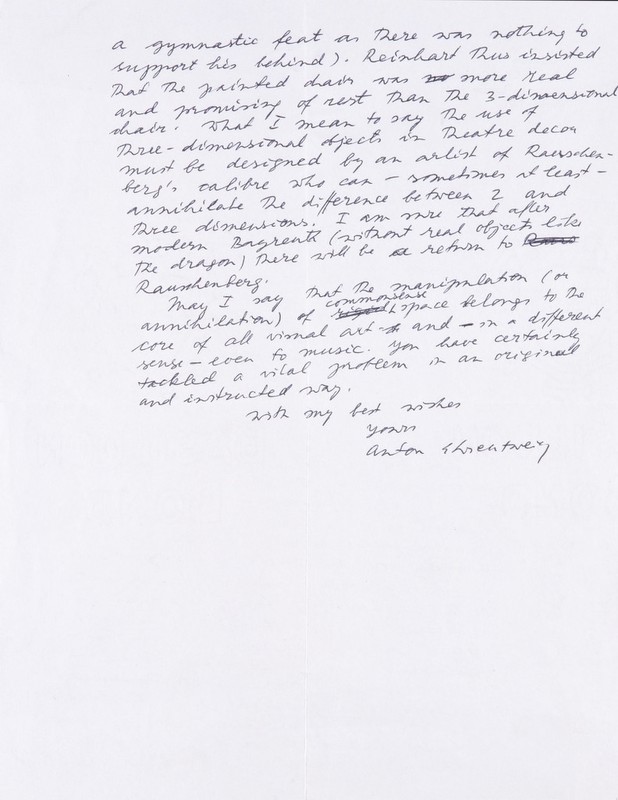 a gymnastic feat as there was nothing to
support his behind). Reinhart thus insisted
that the painted chair was more real
and promising of rest than the 3-dimensional
chair. What I mean to say the use of
three-dimensional objects in theatre decor
must be designed by an artist of Rauschen-
berg's calibre who can – sometimes at least –
annihilate the difference between 2 and
three dimensions. I am sure that after
modern Bayreuth (without real objects like
the dragon) there will be a return to
Rauschenberg.
May I say that the manipulation (or
annihilation) of commonsense space belongs to the
core of all visual art and – in a different
sense – even to music. You have certainly
tackled a vital problem in an original
and instructed way.
With my best wishes
Yours
Anton Ehrenzweig